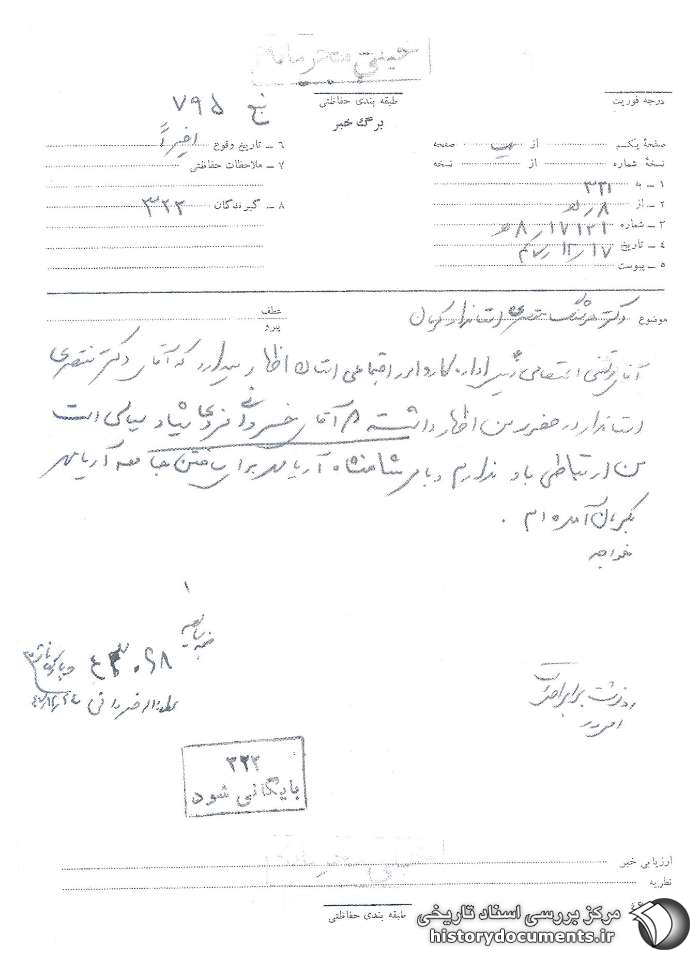 خیلی محرمانه
درجه فوریت
طبقه بندی حفاظتی
برگ خبر
نخ ۷۹۵
صفحهٔ یکم از یک صفحه
نسخهٔ شماره از نسخه
۱ ـ به ۳۲۱
۲ ـ از ۸/ه
۳ ـ شماره ۱۷۱۲۱/۸ه
۴ ـ تاریخ ۱۷/۱۲/۴۷
۵ ـ پیوست
۶ ـ تاریخ وقوع اخیراً
۷ ـ ملاحظات حفاظتی
۸ ـ گیرندگان ۳۲۲
موضوع دکتر منتصری استاندار کرمان
عطف
پیرو
آقای اعتصامی رئیس اداره کار و امور اجتماعی استان اظهار میدارد که آقای دکتر منتصری
استاندار در حضور من اظهار داشته آقای خسروانی فردی شیاد سیاسی است
من ارتباطی با او ندارم و بامر شاهنشاه آریامهر برای ساختن جامعه آریامهر
بکرمان آمده ام .
خواجه
۱
ضمیمه
رونوشت برابر اصل است
۳۲۲
بایگانی شود
خیلی محرمانه
ارزیابی خبر
نظریه
طبقه بندی حفاظتی
مرکز بررسی اسناد تاریخی
historydocuments.ir